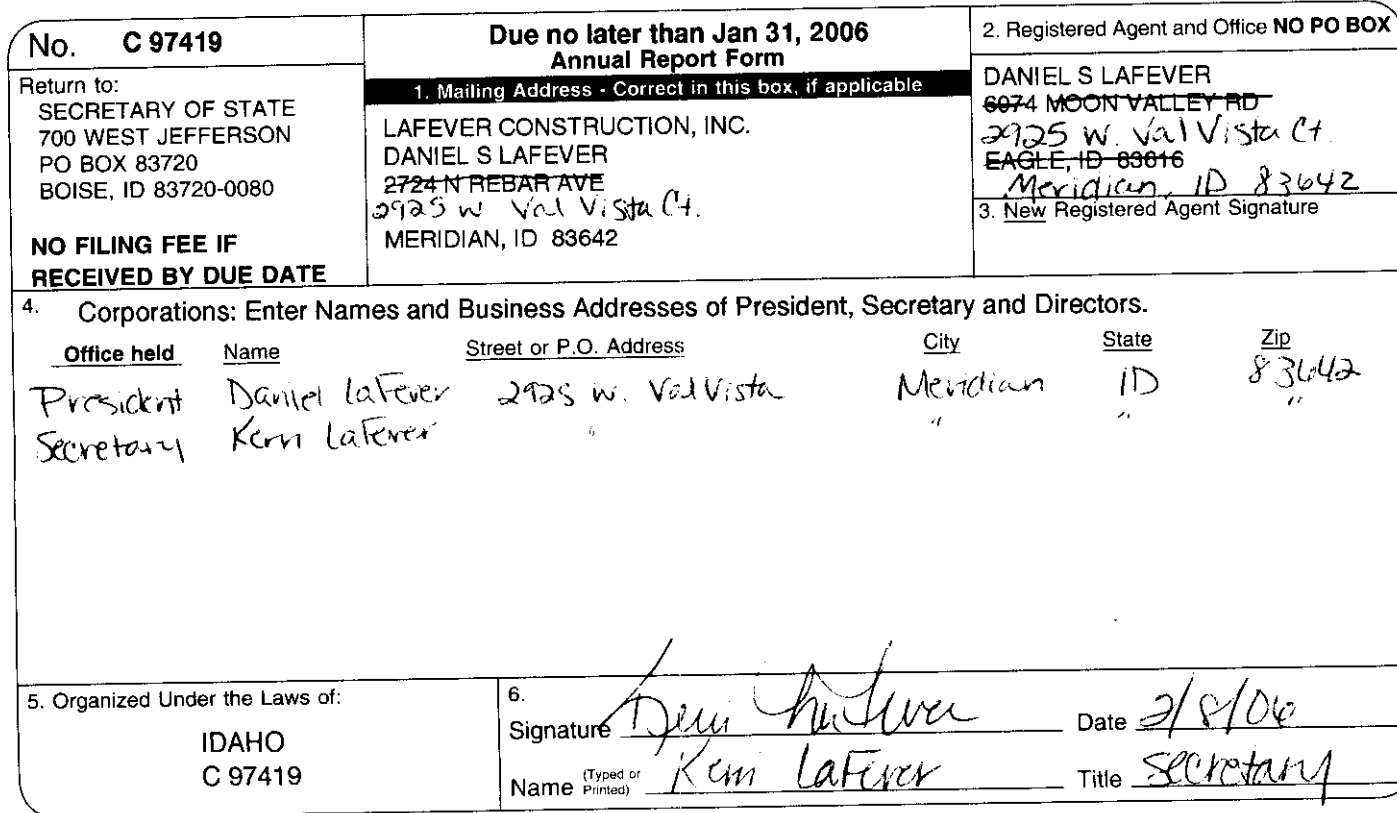 No. C 97419
Return to:
SECRETARY OF STATE
700 WEST JEFFERSON
PO BOX 83720
BOISE, ID 83720-0080
NO FILING FEE IF
RECEIVED BY DUE DATE
Due no later than Jan 31, 2006
Annual Report Form
1. Mailing Address - Correct in this box, if applicable
LAFEVER CONSTRUCTION, INC.
DANIEL S LAFEVER
2724 N REBAR AVE
2925 W Val Vista Ct.
MERIDIAN, ID 83642
2. Registered Agent and Office NO PO BOX
DANIEL S LAFEVER
6074 MOON VALLEY RD
2925 W. Val Vista Ct.
EAGLE, ID 83616
Meridian, ID 83642
3. New Registered Agent Signature
4. Corporations: Enter Names and Business Addresses of President, Secretary and Directors.
Office held Name Street or P.O. Address City State Zip
President Daniel LaFever 2925 W. Val Vista Meridian ID 83642
Secretary Kerri LaFever " " " "
5. Organized Under the Laws of:
IDAHO
C 97419
6.
Signature Kerri LaFever Date 2/8/06
Name (Typed or Printed) Kerri LaFever Title Secretary